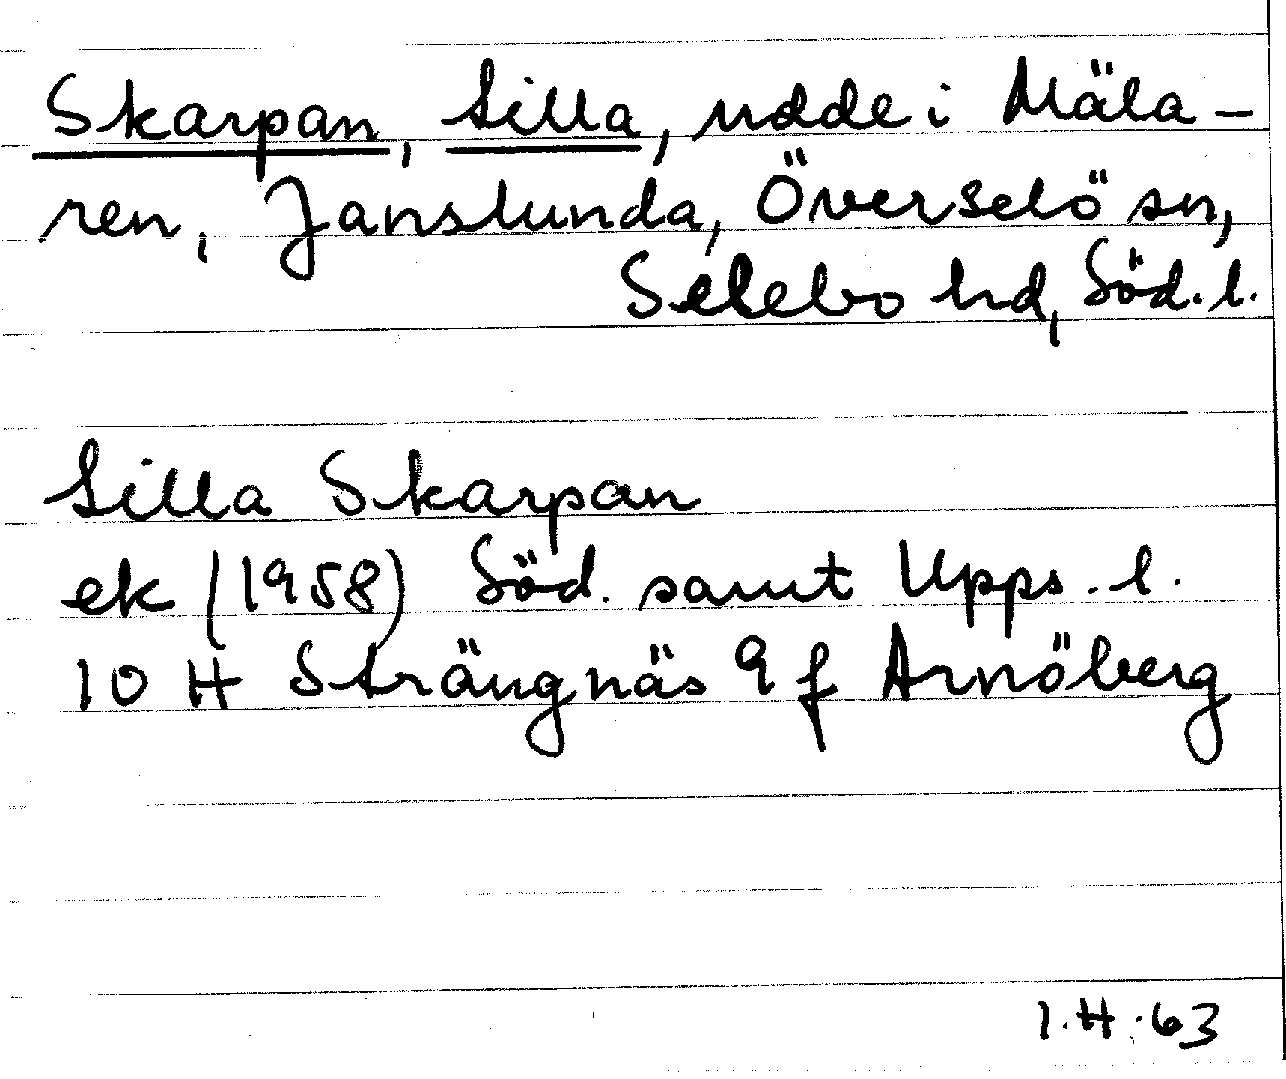 Skarpan, Lilla, udde i Mäla-
ren, Janslunda, Överselö sn,
Selebo hd, Söd. l.
Lilla Skarpan
ek (1958) Söd. samt Upps. l.
10 H Strängnäs 9 f Arnöberg
I.H. 63